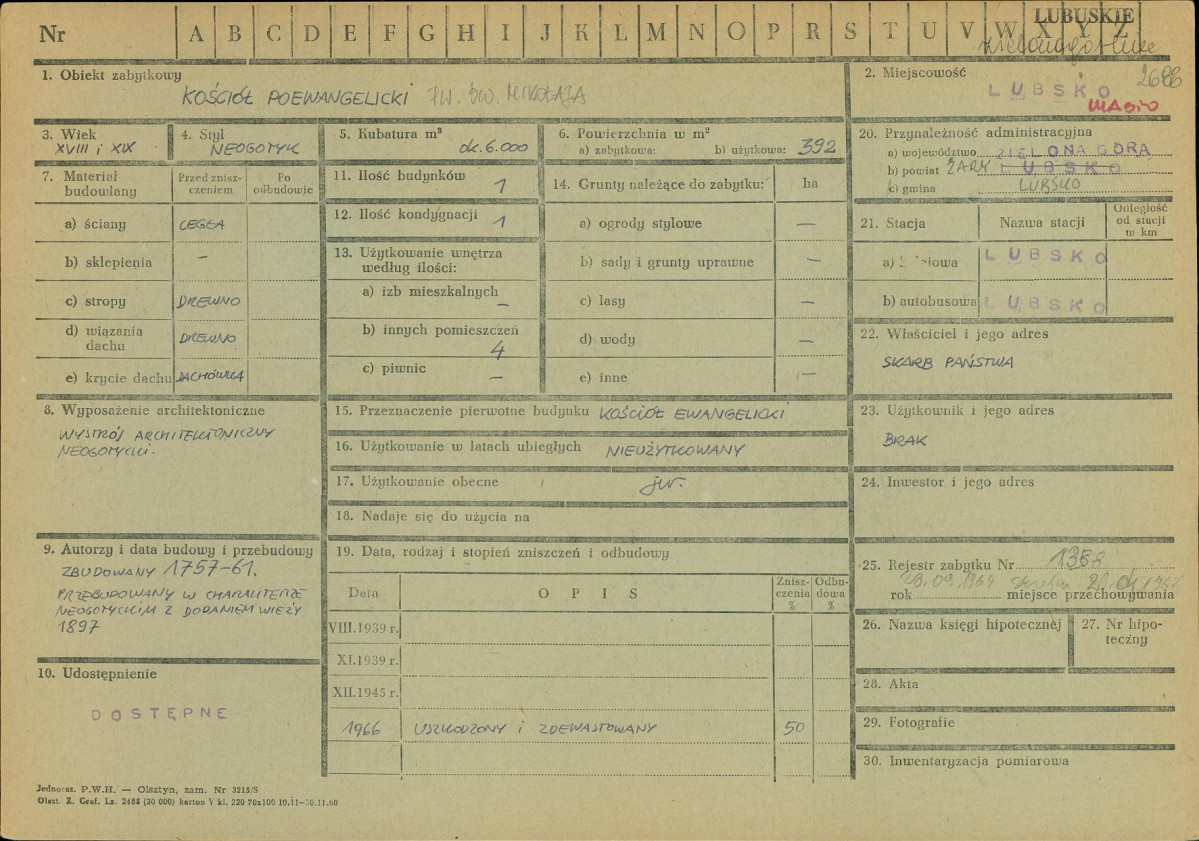 Nr A B C D E F G H I J K L M N O P R S T U V W X Y Z
LUBUSKIE
1. Obiekt zabytkowy
KOŚCIÓŁ POEWANGELICKI PW. ŚW. MIKOŁAJA
2. Miejscowość
2688
LUBSKO
3. Wiek
XVIII i XIX
4. Styl
NEOGOTYK
5. Kubatura m³
ok. 6.000
6. Powierzchnia w m²
a) zabytkowa: b) użytkowa: 392
20. Przynależność administracyjna
a) województwo ZIELONA GÓRA
b) powiat ŻARY LUBSKO
c) gmina LUBSKO
7. Materiał budowlany
Przed zniszczeniem
Po odbudowie
a) ściany CEGŁA
b) sklepienia –
c) stropy DREWNO
d) wiązania dachu DREWNO
e) krycie dachu DACHÓWKA
11. Ilość budynków 1
12. Ilość kondygnacji 1
13. Użytkowanie wnętrza
według ilości:
a) izb mieszkalnych –
b) innych pomieszczeń
4
c) piwnic –
14. Grunty należące do zabytku: ha
a) ogrody stylowe —
b) sady i grunty uprawne —
c) lasy —
d) wody —
e) inne —
21. Stacja
Nazwa stacji
Odległość
od stacji
w km
LUBSKO
b) autobusowa LUBSKO
22. Właściciel i jego adres
SKARB PAŃSTWA
8. Wyposażenie architektoniczne
WYSTRÓJ ARCHITEKTONICZNY
NEOGOTYCKI.
15. Przeznaczenie pierwotne budynku KOŚCIÓŁ EWANGELICKI
16. Użytkowanie w latach ubiegłych NIEUŻYTKOWANY
17. Użytkowanie obecne jw.
18. Nadaje się do użycia na
23. Użytkownik i jego adres
BRAK
24. Inwestor i jego adres
9. Autorzy i data budowy i przebudowy
ZBUDOWANY 1757-61.
PRZEBUDOWANY W CHARAKTERZE
NEOGOTYCKIM Z DODANIEM WIEŻY
1897
10. Udostępnienie
DOSTĘPNE
19. Data, rodzaj i stopień zniszczeń i odbudowy
Data
OPIS
Zniszczenia %
Odbudowa %
VIII.1939 r.
XI.1939 r.
XII.1945 r.
1966 USZKODZONY i ZDEWASTOWANY 50
25. Rejestr zabytku Nr 1368
rok miejsce przechowywania
26. Nazwa księgi hipotecznej
27. Nr hipoteczny
28. Akta
29. Fotografie
30. Inwentaryzacja pomiarowa
Jednoraz. P.W.H. — Olsztyn, zam. Nr 3215/S
Olszt. Z. Graf. Lz. 2485 (30 000) karton V kl. 220 70x100 10.11—30.11.60